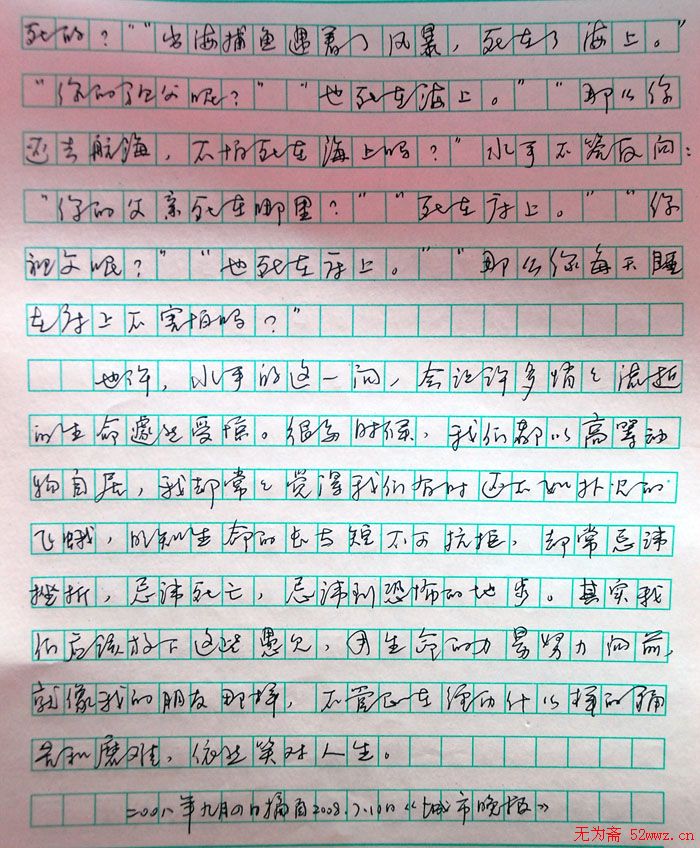 死的？""出海捕鱼遇着了风暴，死在了海上。"
"你的祖父呢？""也死在海上。""那么你
还去航海，不怕死在海上吗？"水手不答反问：
"你的父亲死在哪里？""死在床上。""你
祖父呢？""也死在床上。""那么你每天睡
在床上不害怕吗？"
也许，水手的这一问，会让许多悄々流逝
的生命遽然受惊。很多时候，我们都以高等动
物自居，我却常々觉得我们有时还不如扑火的
飞蛾，明知生命的长与短不可抗拒，却常忌讳
挫折，忌讳死亡，忌讳到恐怖的地步。其实我
们应该放下这些愚见，用生命的力量努力向前，
就像我的朋友那样，不管正在经历什么样的痛
苦和磨难，依然笑对人生。
二〇〇八年九月四日摘自2008.7.10日《城市晚报》
无为斋 52wwz.cn